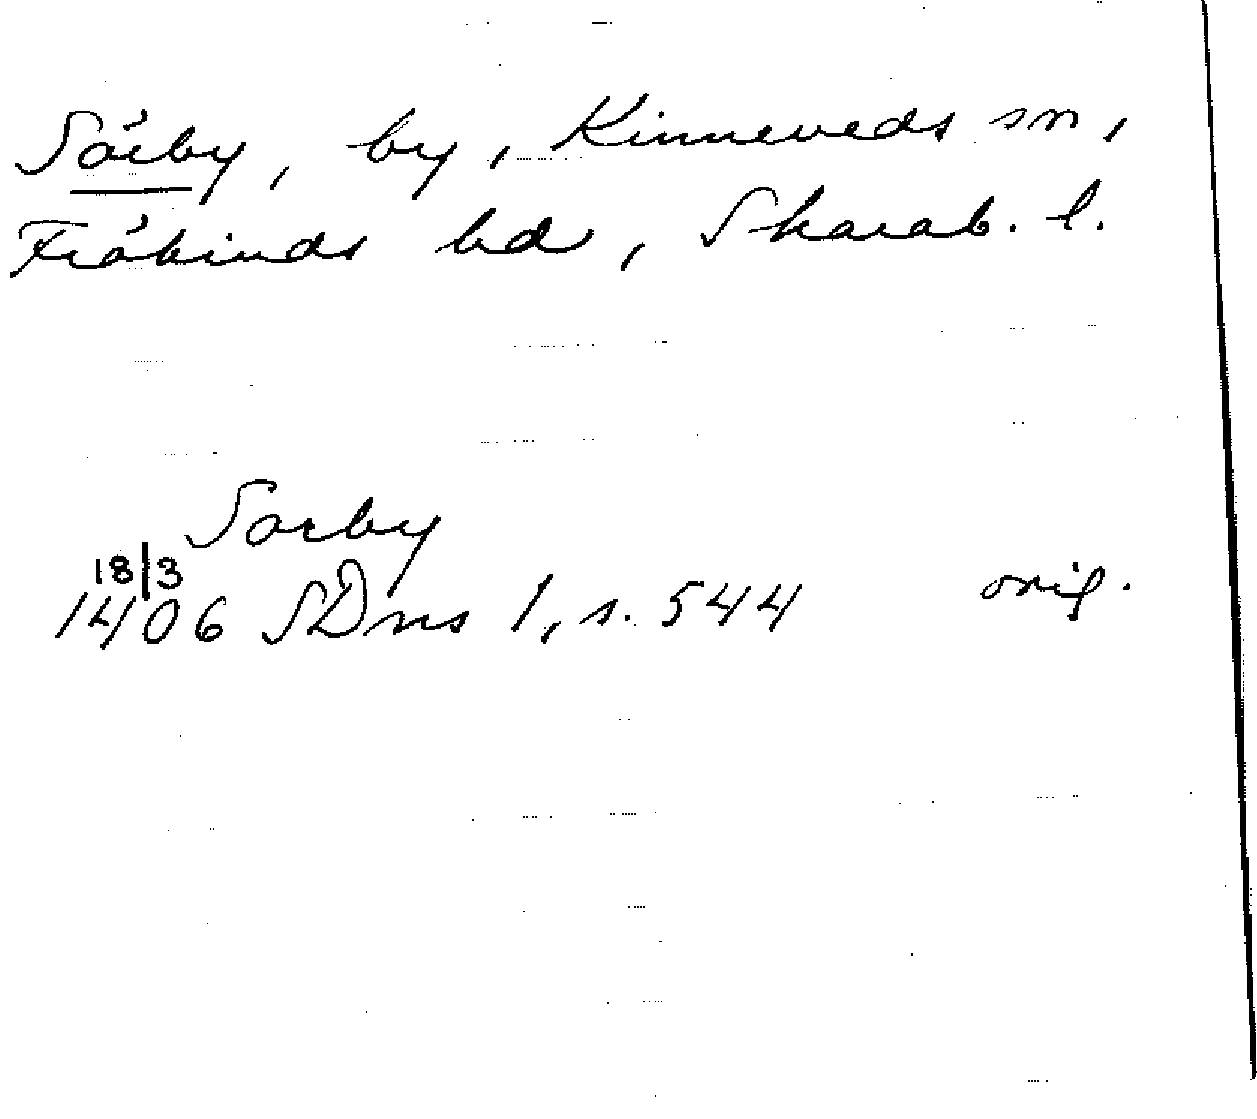 Sörby, by, Kinneveds sn,
Frökinds hd, Skarab. l.
Sorby
18/3
1406 SDns 1, s. 544 orig.